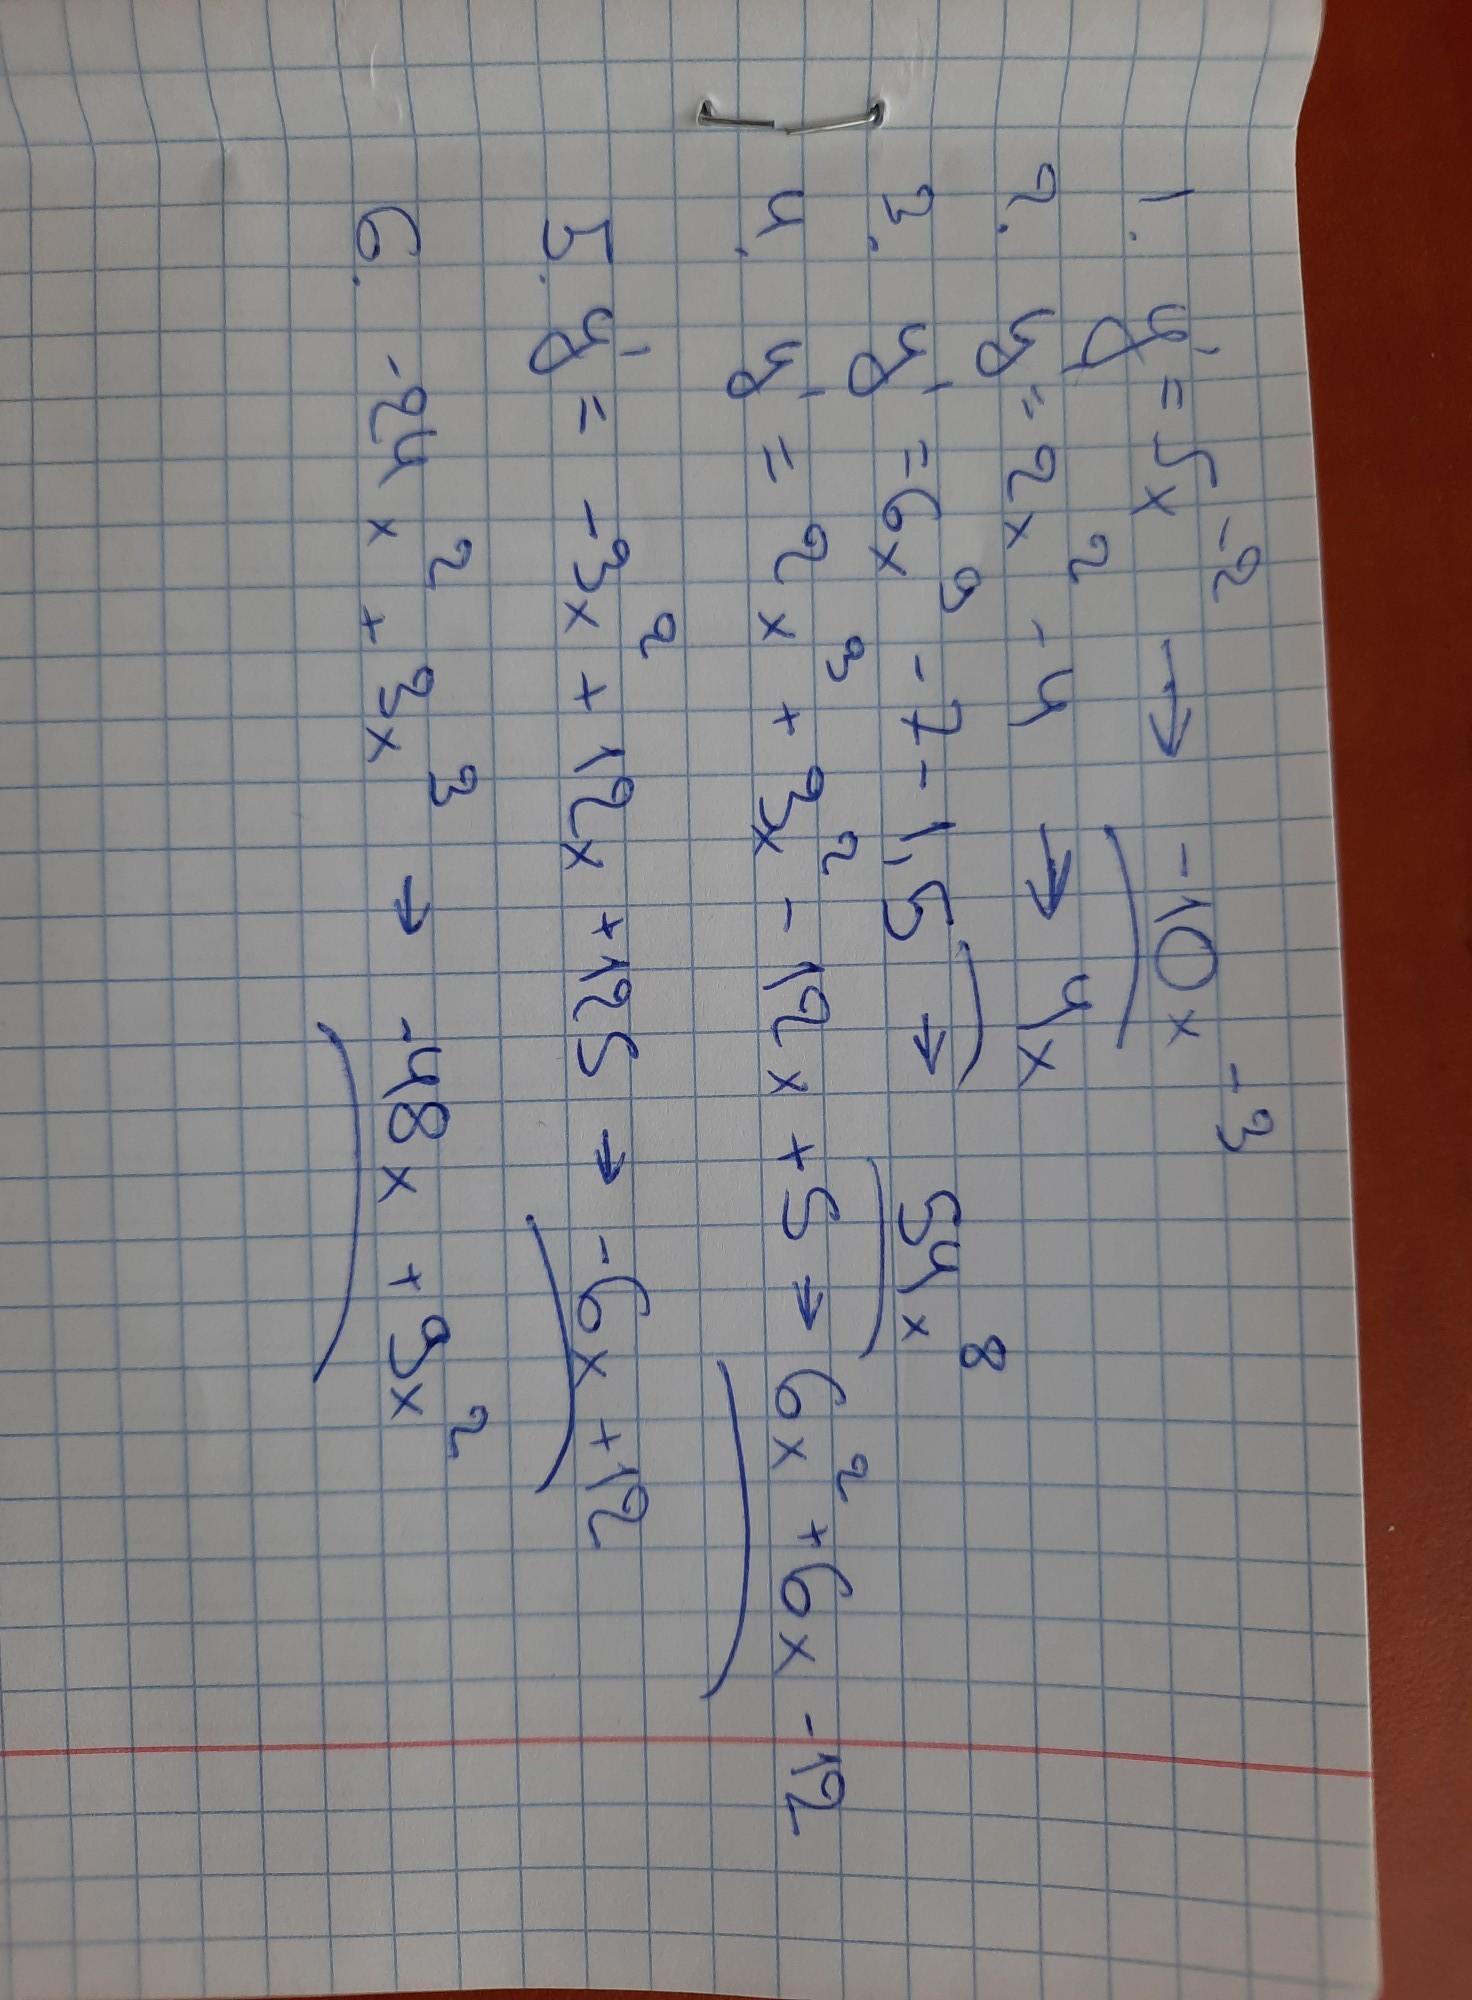 1. y' = 5x⁻² → -10x⁻³
2. y = 2x² - 4 → 4x
3. y' = 6x⁹ - 7 - 1,5 → 54x⁸
4. y' = 2x³ + 3x² - 12x + 5 → 6x² + 6x - 12
5. y' = -3x² + 12x + 125 → -6x + 12
6. -24x² + 3x³ → -48x + 9x²